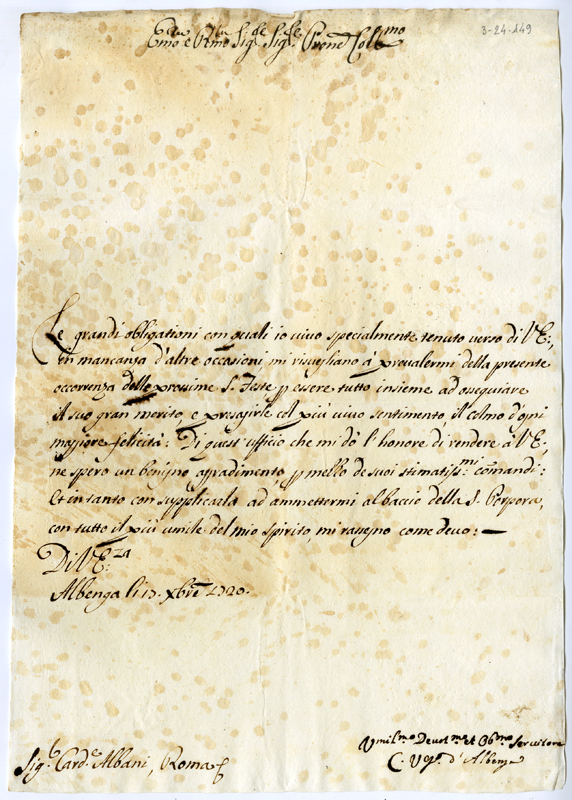 3-24-149
Emo e Rmo Sigre Sigre Pron Colmo
Le grandi obligationi con quali io vivo specialmente tenuto verso di V E:,
in mancanza d'altre occasioni mi risvegliano à prevalermi della presente
occorrenza delle prossime S. Feste p essere tutto insieme ad ossequiare
il suo gran merito, e presagirle col più vivo sentimento il colmo d'ogni
maggiore felicità: Di quest'ufficio che mi dò l'honore di rendere à V E,
ne spero un benigno aggradimento, p mello de suoi stimatissmi comandi:
Et intanto con supplicarla ad ammettermi al baccio della S. Porpora,
con tutto il più umile del mio spirito, mi rassegno come devo: —
Di V Eza
Albenga li 13. Xbre 1720.
Umilmo Devotmo et Obmo Servitore
C. Vo d'Albenga
Sigr Carde Albani, Roma